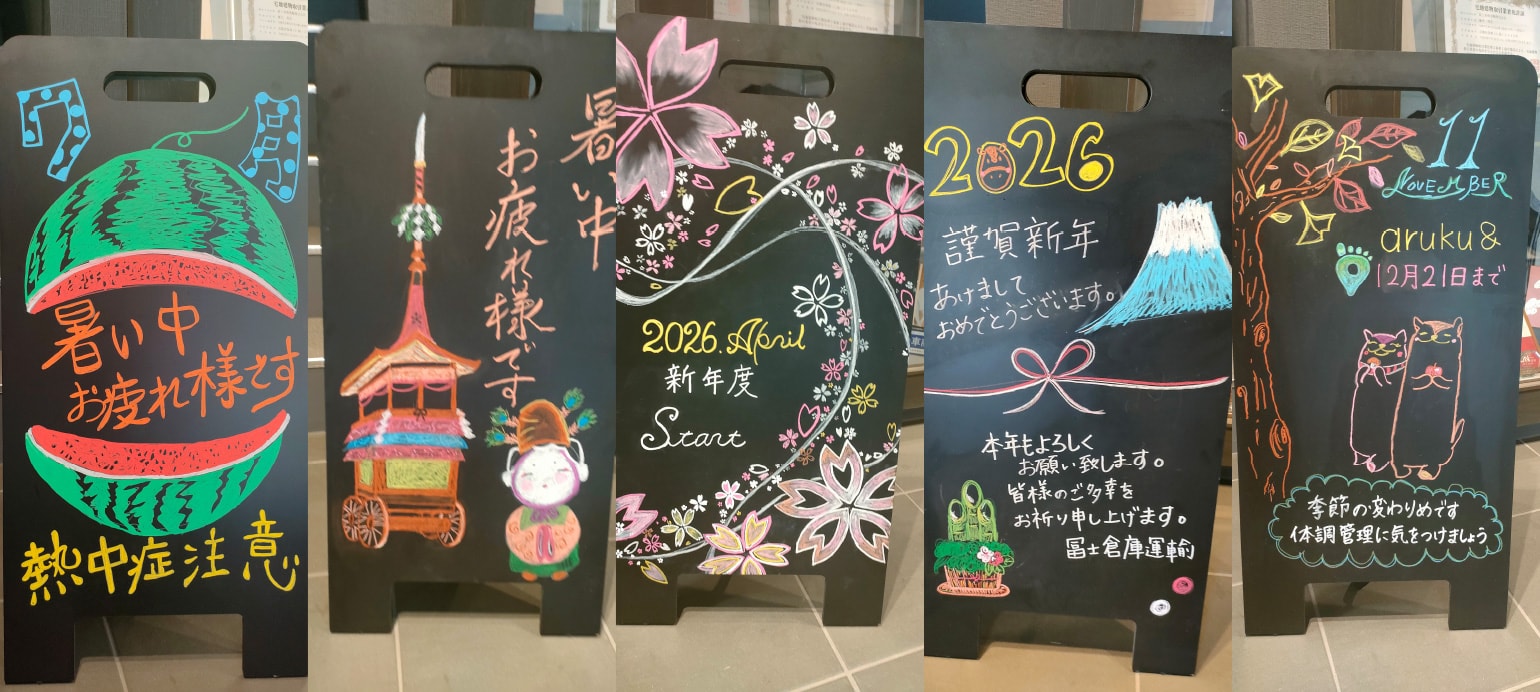 7月
暑い中
お疲れ様です
熱中症注意
暑い中
お疲れ様です
2026. April
新年度
Start
2026
謹賀新年
あけまして
おめでとうございます。
本年もよろしく
お願い致します。
皆様のご多幸を
お祈り申し上げます。
冨士倉庫運輸
11
NOVEMBER
aruku&
12月21日まで
季節の変わりめです
体調管理に気をつけましょう